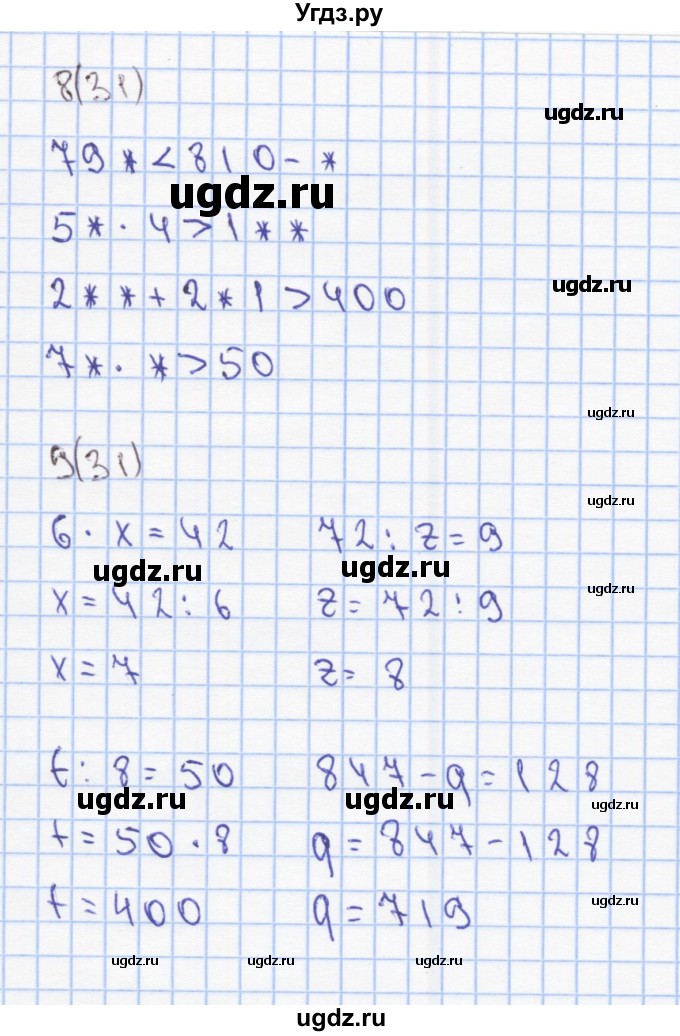 Угдз.ру
8(31)
ugdz.ru
79* < 810 - *
ugdz.ru
5* · 4 > 1**
2** + 2*1 > 400
ugdz.ru
7* · * > 50
ugdz.ru
9(31)
ugdz.ru
6 · x = 42 72 : z = 9
ugdz.ru ugdz.ru
ugdz.ru
x = 42 : 6 z = 72 : 9
x = 7 z = 8
t : 8 = 50 847 - q = 128
ugdz.ru ugdz.ru ugdz.ru
t = 50 · 8 q = 847 - 128
ugdz.ru
t = 400 q = 719
ugdz.ru ugdz.ru ugdz.ru
ugdz.ru